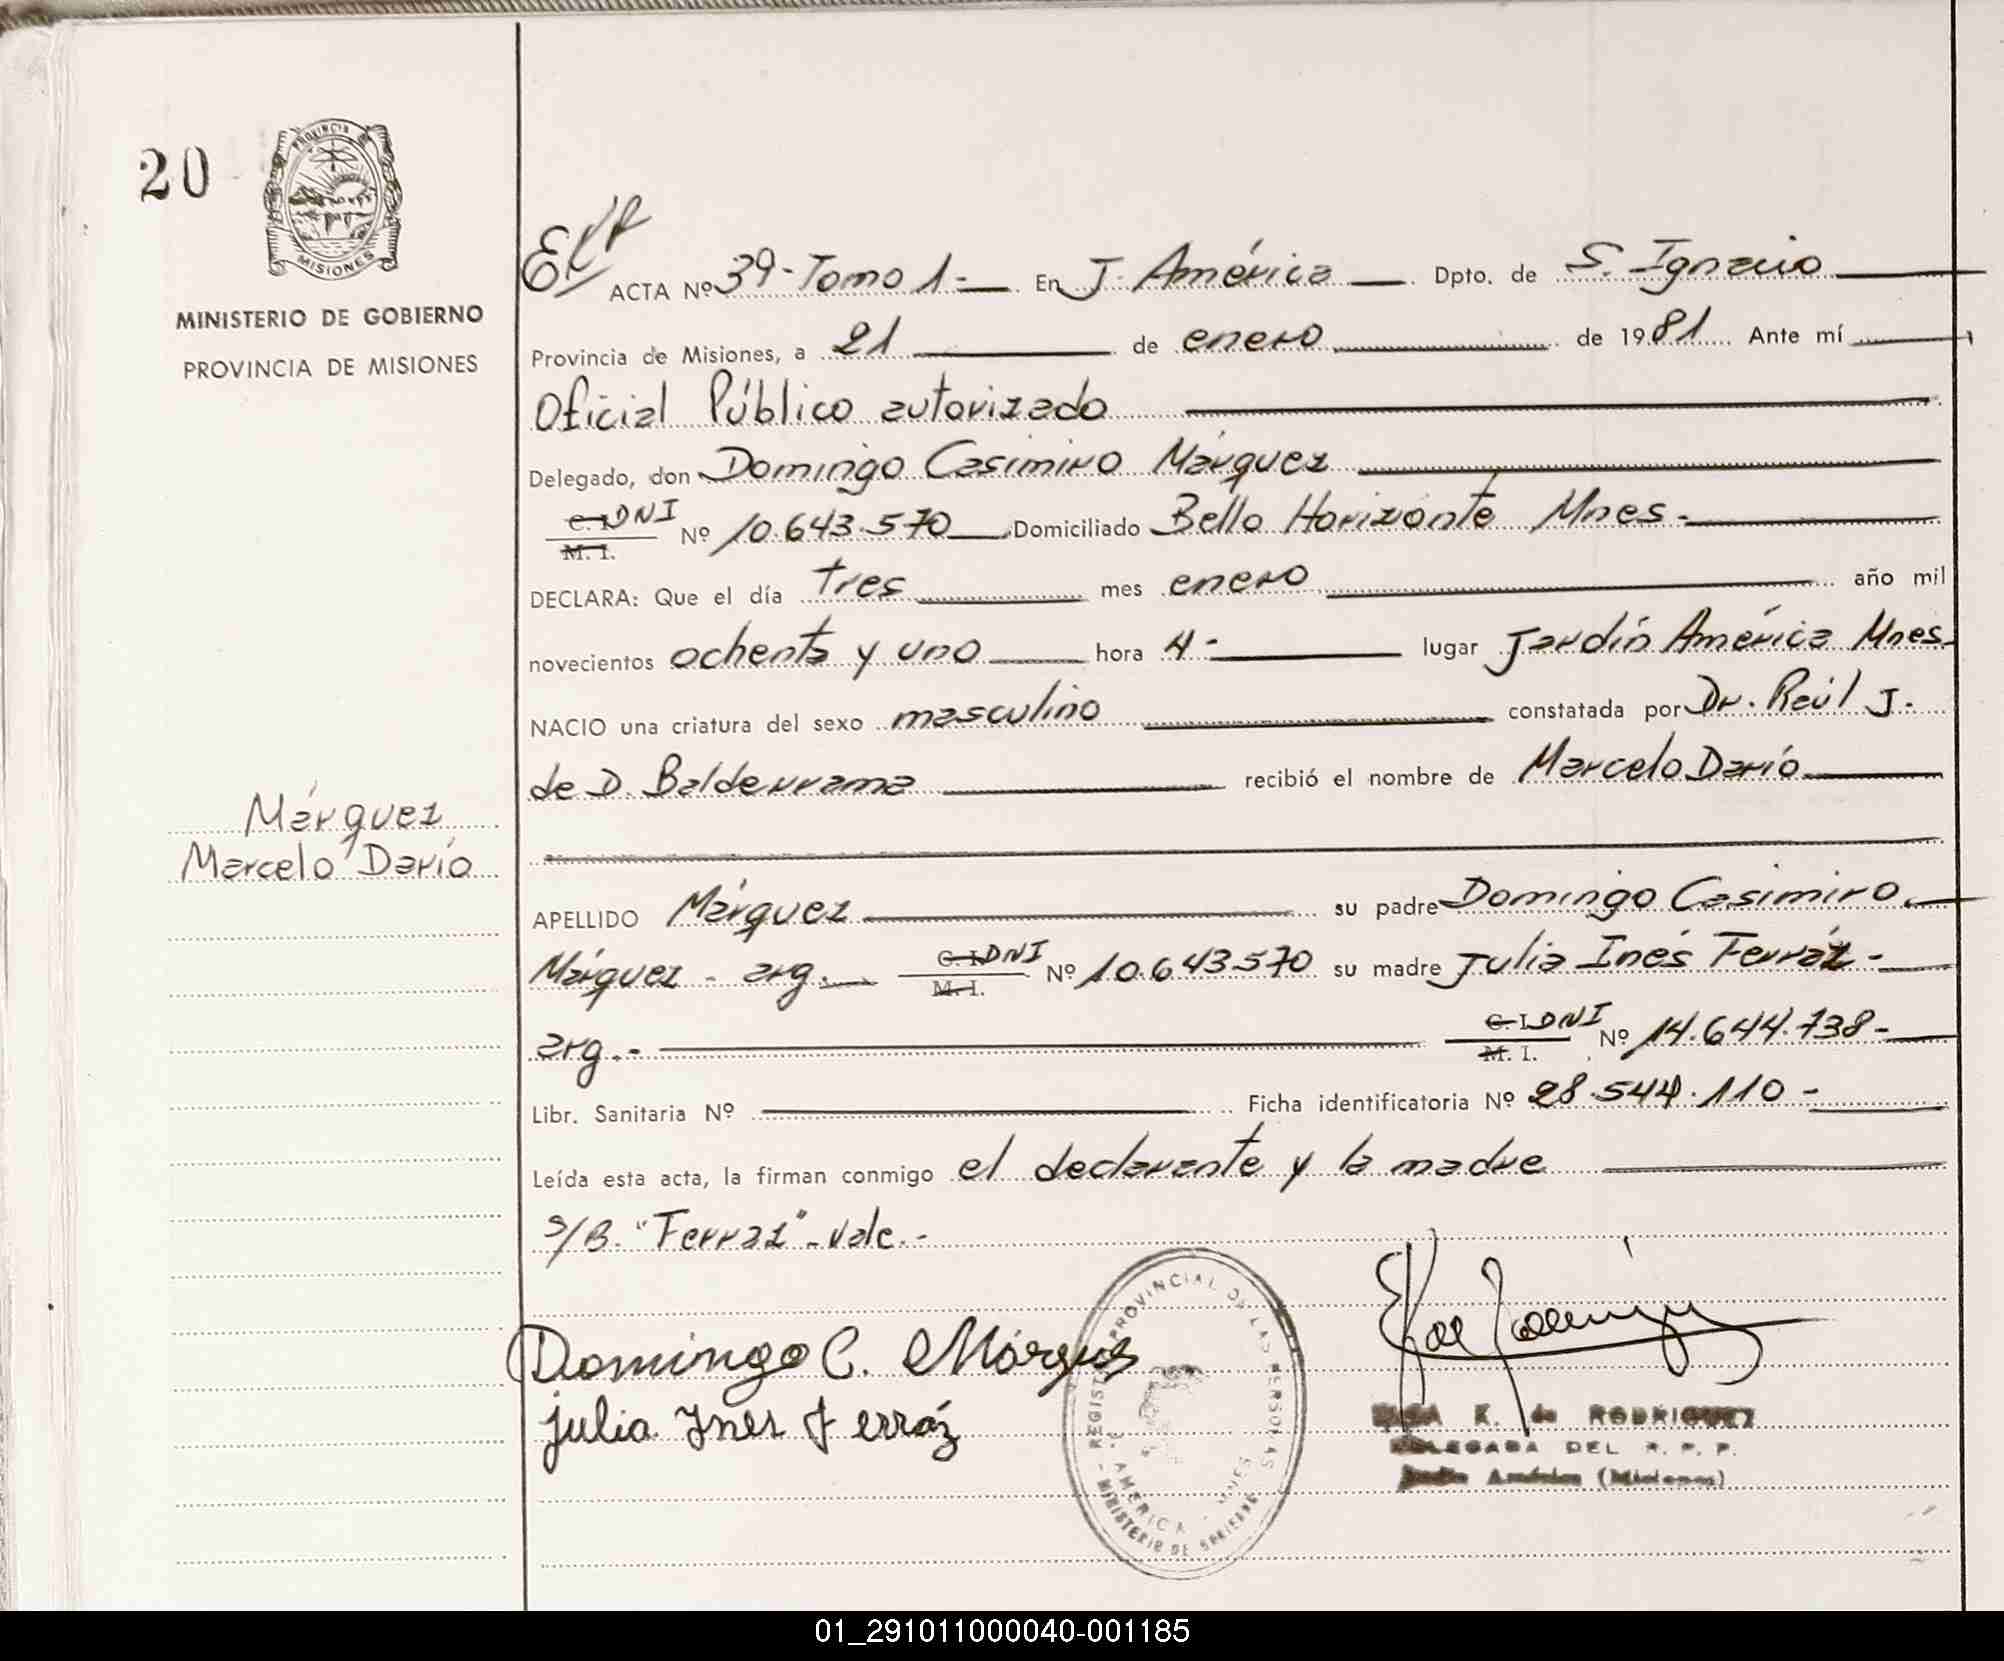 20
PROVINCIA DE
MISIONES
MINISTERIO DE GOBIERNO
PROVINCIA DE MISIONES
Márquez
Marcelo Darío
ACTA Nº 39-Tomo 1- En J. América Dpto. de S. Ignacio
Provincia de Misiones, a 21 de enero de 1981 Ante mí
Oficial Público autorizado
Delegado, don Domingo Casimiro Márquez
C. I. DNI
M. I. Nº 10.643.570 Domiciliado Bello Horizonte Mnes.-
DECLARA: Que el día tres mes enero año mil
novecientos ochenta y uno hora 4- lugar Jardín América Mnes.
NACIO una criatura del sexo masculino constatada por Dr. Raúl J.
de D. Balderrama recibió el nombre de Marcelo Darío
APELLIDO Márquez su padre Domingo Casimiro
Márquez - arg. C. I. DNI M. I. Nº 10.643.570 su madre Julia Inés Ferráz-
arg.- C. I. DNI M. I. Nº 14.644.738-
Libr. Sanitaria Nº Ficha identificatoria Nº 28.544.110-
Leída esta acta, la firman conmigo el declarante y la madre
s/B. "Ferraz"-vale.-
Domingo C. Márques
Julia Ines Ferráz
REGISTRO PROVINCIAL DE LAS PERSONAS
J. AMERICA - MNES
MINISTERIO DE GOBIERNO
K. de RODRIGUEZ
DELEGADA DEL R. P. P.
Jardín América (Misiones)
01_291011000040-001185